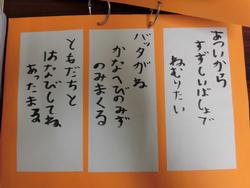 あついから
すずしいばしょで
ねむりたい
バッタがね
かなへびのみず
のみまくる
ともだちと
はなびしてね
あったまる